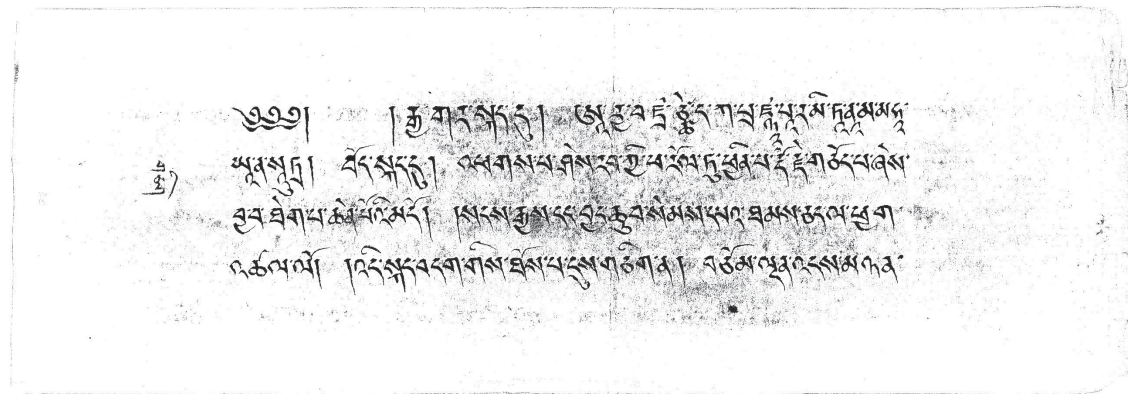 ༄༅༅། །རྒྱ་གར་སྐད་དུ། ཨཱརྱ་བཛྲ་ཙྪེད་ཀ་པྲ་ཛྙཱ་པཱ་ར་མི་ཏཱ་ནཱ་མ་མ་ཧཱ་
ཡཱ་ན་སཱུ་ཏྲ། བོད་སྐད་དུ། འཕགས་པ་ཤེས་རབ་ཀྱི་ཕ་རོལ་ཏུ་ཕྱིན་པ་རྡོ་རྗེ་གཅོད་པ་ཞེས་
བྱ་བ་ཐེག་པ་ཆེན་པོའི་མདོ། །སངས་རྒྱས་དང་བྱང་ཆུབ་སེམས་དཔའ་ཐམས་ཅད་ལ་ཕྱག་
འཚལ་ལོ། །འདི་སྐད་བདག་གིས་ཐོས་པ་དུས་གཅིག་ན། བཅོམ་ལྡན་འདས་མཉན་